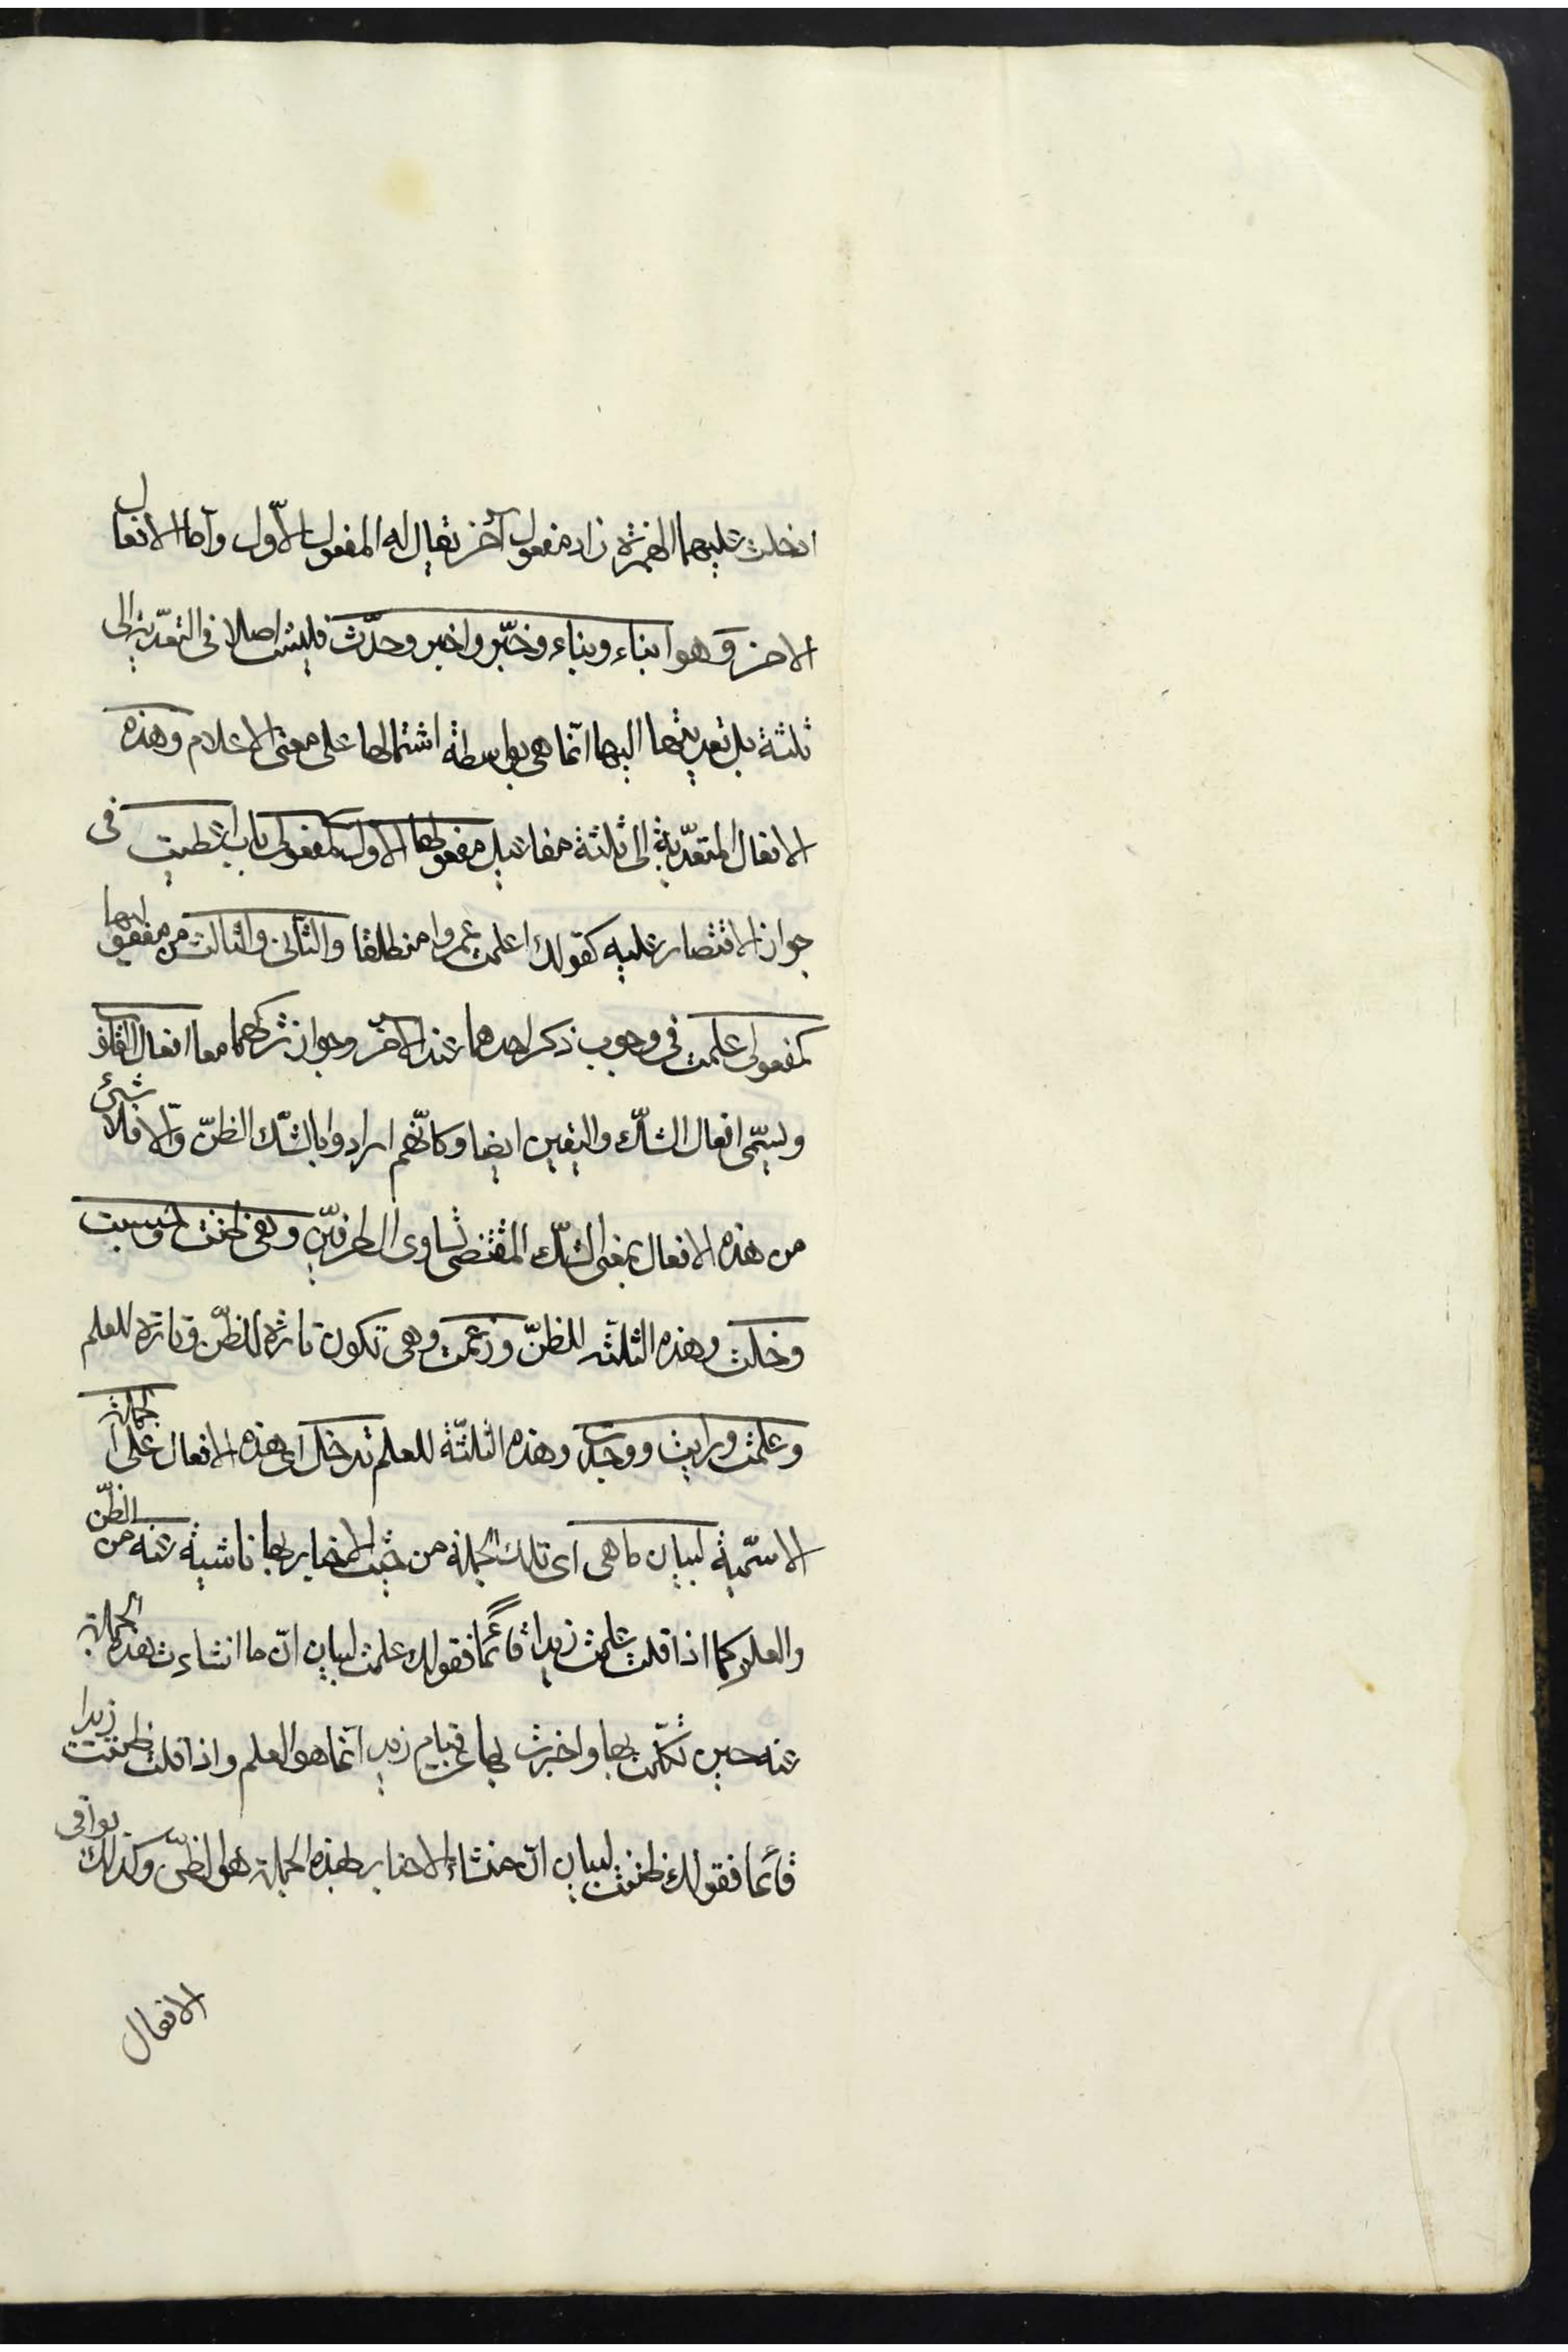 ادخلت عليهما الهمزة زاد مفعول آخر يقال له المفعول الأوّل وأما الافعال
الاخر وهو انباء ونباء وخبّر واخبر وحدّث فليست اصلا فى التعدّية الى
ثلثة بل تعديتها اليها انّما هى بواسطة اشتمالها على معنى الاعلام وهذه
الافعال المتعدّية الى ثلثة مفاعيل مفعولها الاول كمفعولى باب اعطيت فى
جواز الاقتصار عليه كقولك اعلمت عمروا منطلقا والثانى والثالث من مفعوليها
كمفعولى علمت فى وجوب ذكر احدهما عند الآخر وجواز تركهما معا افعال القلوب
ويسمّى افعال الشكّ واليقين ايضا وكانّهم ارادوا بالشّك الظنّ وإلّا فلا شئ
من هذه الافعال بمعنى الشكّ المقتضى تساوى الطرفيّن وهى ظننت وحسبت
وخلت وهذه الثلثة للظنّ وزعمت وهى تكون تارة للظنّ وتارة للعلم
وعلمت ورايت ووجدت وهذه الثلثّة للعلم تدخل اى هذه الافعال على الجملة
الاسّمية لبيان ما هى اى تلك الجملة من حيث الاخبار بها ناشية عنه من الظنّ
والعلم كما اذا قلت علمت زيدا قائما فقولك علمت لبيان انّ ما انشاءت هذه الجملة
عنه حين تكلّمت بها واخبرت بها عن قيام زيد انّما هو العلم واذا قلت ظننت زيدا
قائما فقولك ظننت لبيان انّ منشاء الاخبار بهذه الجملة هو الظنّ وكذلك بواقى
الافعال